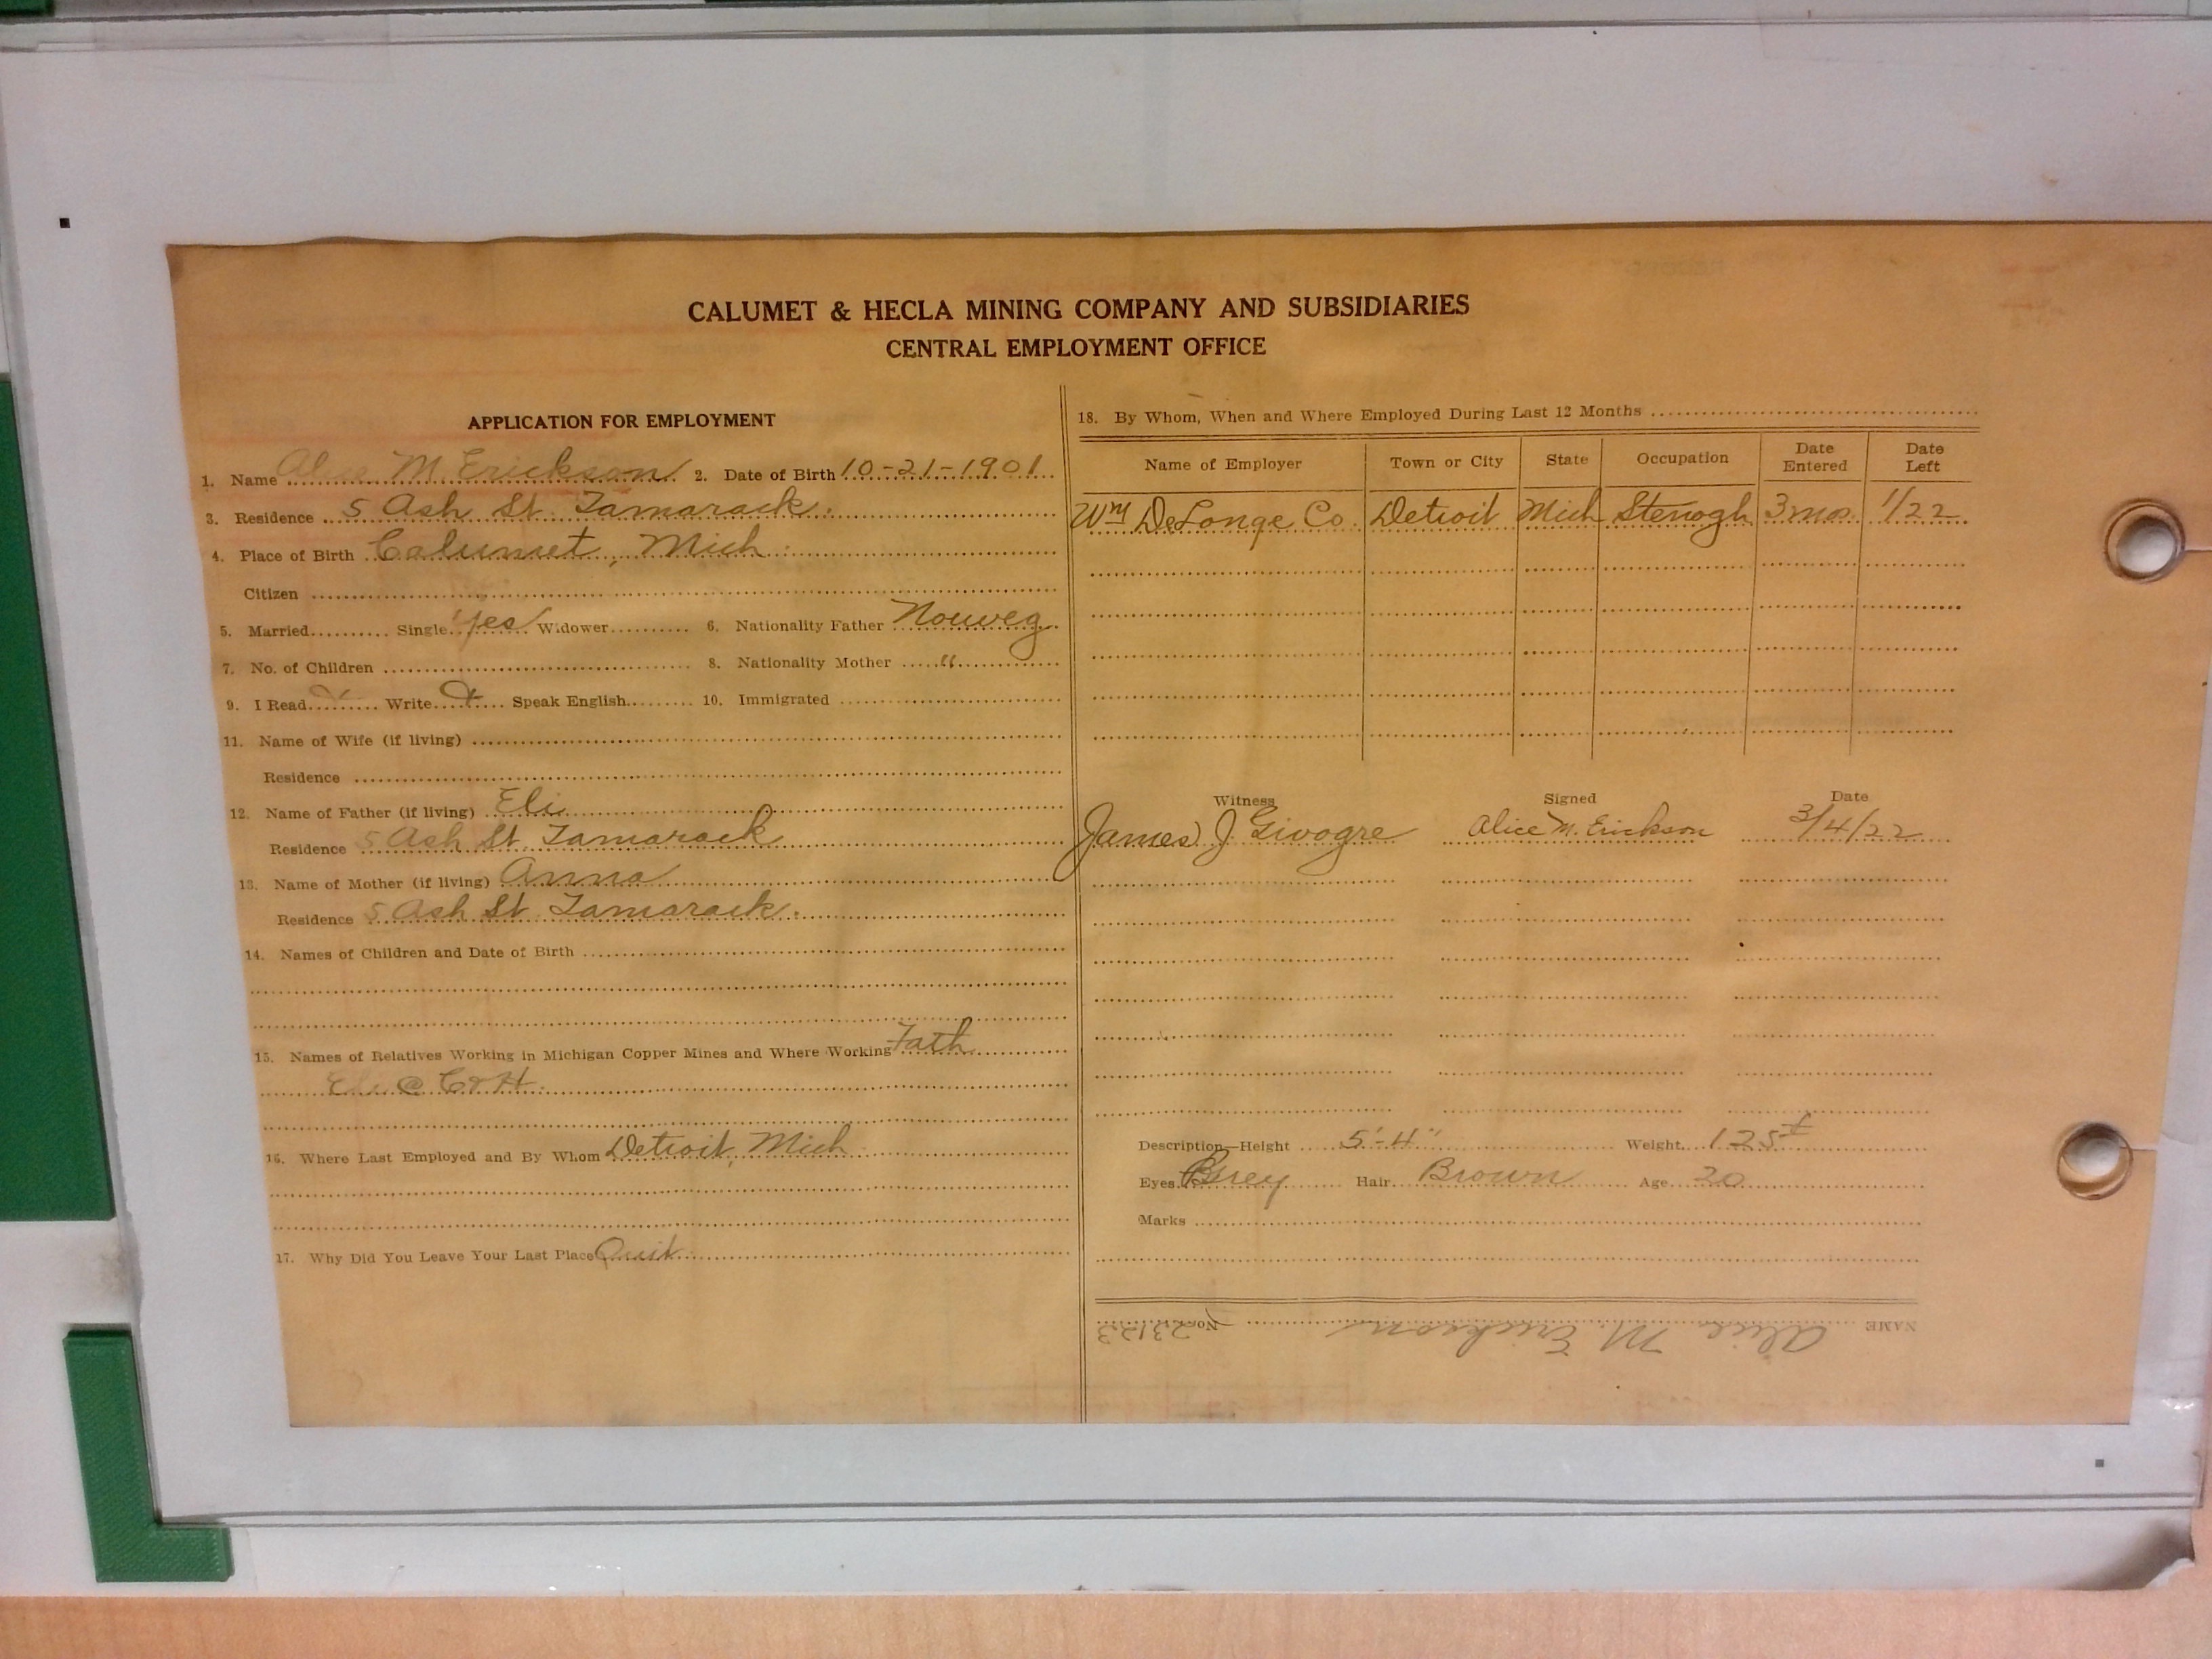 CALUMET & HECLA MINING COMPANY AND SUBSIDIARIES
CENTRAL EMPLOYMENT OFFICE
APPLICATION FOR EMPLOYMENT
1. Name Alice M. Erickson 2. Date of Birth 10-21-1901
3. Residence 5 Ash St. Tamarack.
4. Place of Birth Calumet, Mich
Citizen
5. Married Single Yes Widower 6. Nationality Father Norweg
7. No. of Children 8. Nationality Mother "
9. I Read X Write X Speak English 10. Immigrated
11. Name of Wife (if living)
Residence
12. Name of Father (if living) Eli
Residence 5 Ash St. Tamarack
13. Name of Mother (if living) Anna
Residence 5 Ash St. Tamarack.
14. Names of Children and Date of Birth
15. Names of Relatives Working in Michigan Copper Mines and Where Working Fath
Eli @ C&H.
16. Where Last Employed and By Whom Detroit, Mich
17. Why Did You Leave Your Last Place Quit
18. By Whom, When and Where Employed During Last 12 Months
Name of Employer Town or City State Occupation Date Entered Date Left
Wm DeLonge Co. Detroit Mich Stenogh 3 mos. 1/22
Witness Signed Date
James J. Givogre Alice M. Erickson 3/4/22
Description—Height 5'-4" Weight 125
Eyes Grey Hair Brown Age 20
Marks
NAME Alice M. Erickson No. 23123